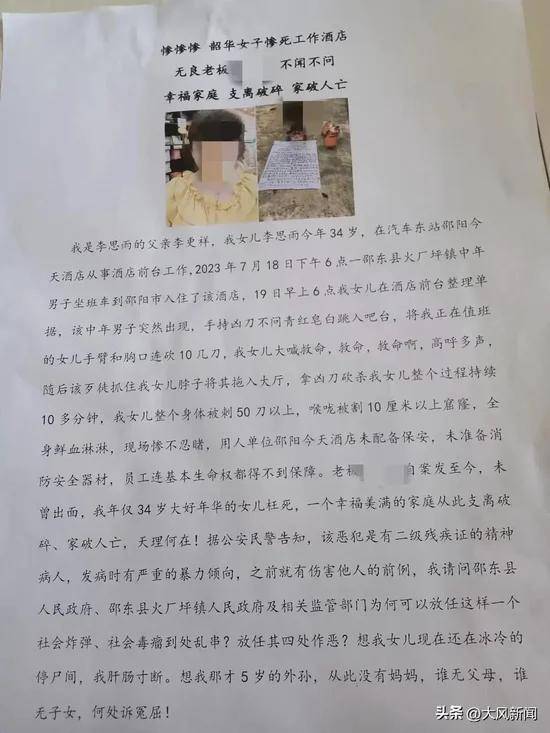 惨惨惨 韶华女子惨死工作酒店
无良老板 不闻不问
幸福家庭 支离破碎 家破人亡
我是李思雨的父亲李更祥，我女儿李思雨今年34岁，在汽车东站邵阳今
天酒店从事酒店前台工作,2023年7月18日下午6点一邵东县火厂坪镇中年
男子坐班车到邵阳市入住了该酒店，19日早上6点我女儿在酒店前台整理单
据，该中年男子突然出现，手持凶刀不问青红皂白跳入吧台，将我正在值班
的女儿手臂和胸口连砍10几刀，我女儿大喊救命，救命，救命啊，高呼多声，
随后该歹徒抓住我女儿脖子将其拖入大厅，拿凶刀砍杀我女儿整个过程持续
10多分钟，我女儿整个身体被刺50刀以上，喉咙被割10厘米以上窟窿，全
身鲜血淋淋，现场惨不忍睹，用人单位邵阳今天酒店未配备保安，未准备消
防安全器材，员工连基本生命权都得不到保障。老板 自案发至今，未
曾出面，我年仅34岁大好年华的女儿枉死，一个幸福美满的家庭从此支离破
碎、家破人亡，天理何在！据公安民警告知，该恶犯是有二级残疾证的精神
病人，发病时有严重的暴力倾向，之前就有伤害他人的前例，我请问邵东县
人民政府、邵东县火厂坪镇人民政府及相关监管部门为何可以放任这样一个
社会炸弹、社会毒瘤到处乱串？放任其四处作恶？想我女儿现在还在冰冷的
停尸间，我肝肠寸断。想我那才5岁的外孙，从此没有妈妈，谁无父母，谁
无子女，何处诉冤屈！
头条 @大风新闻